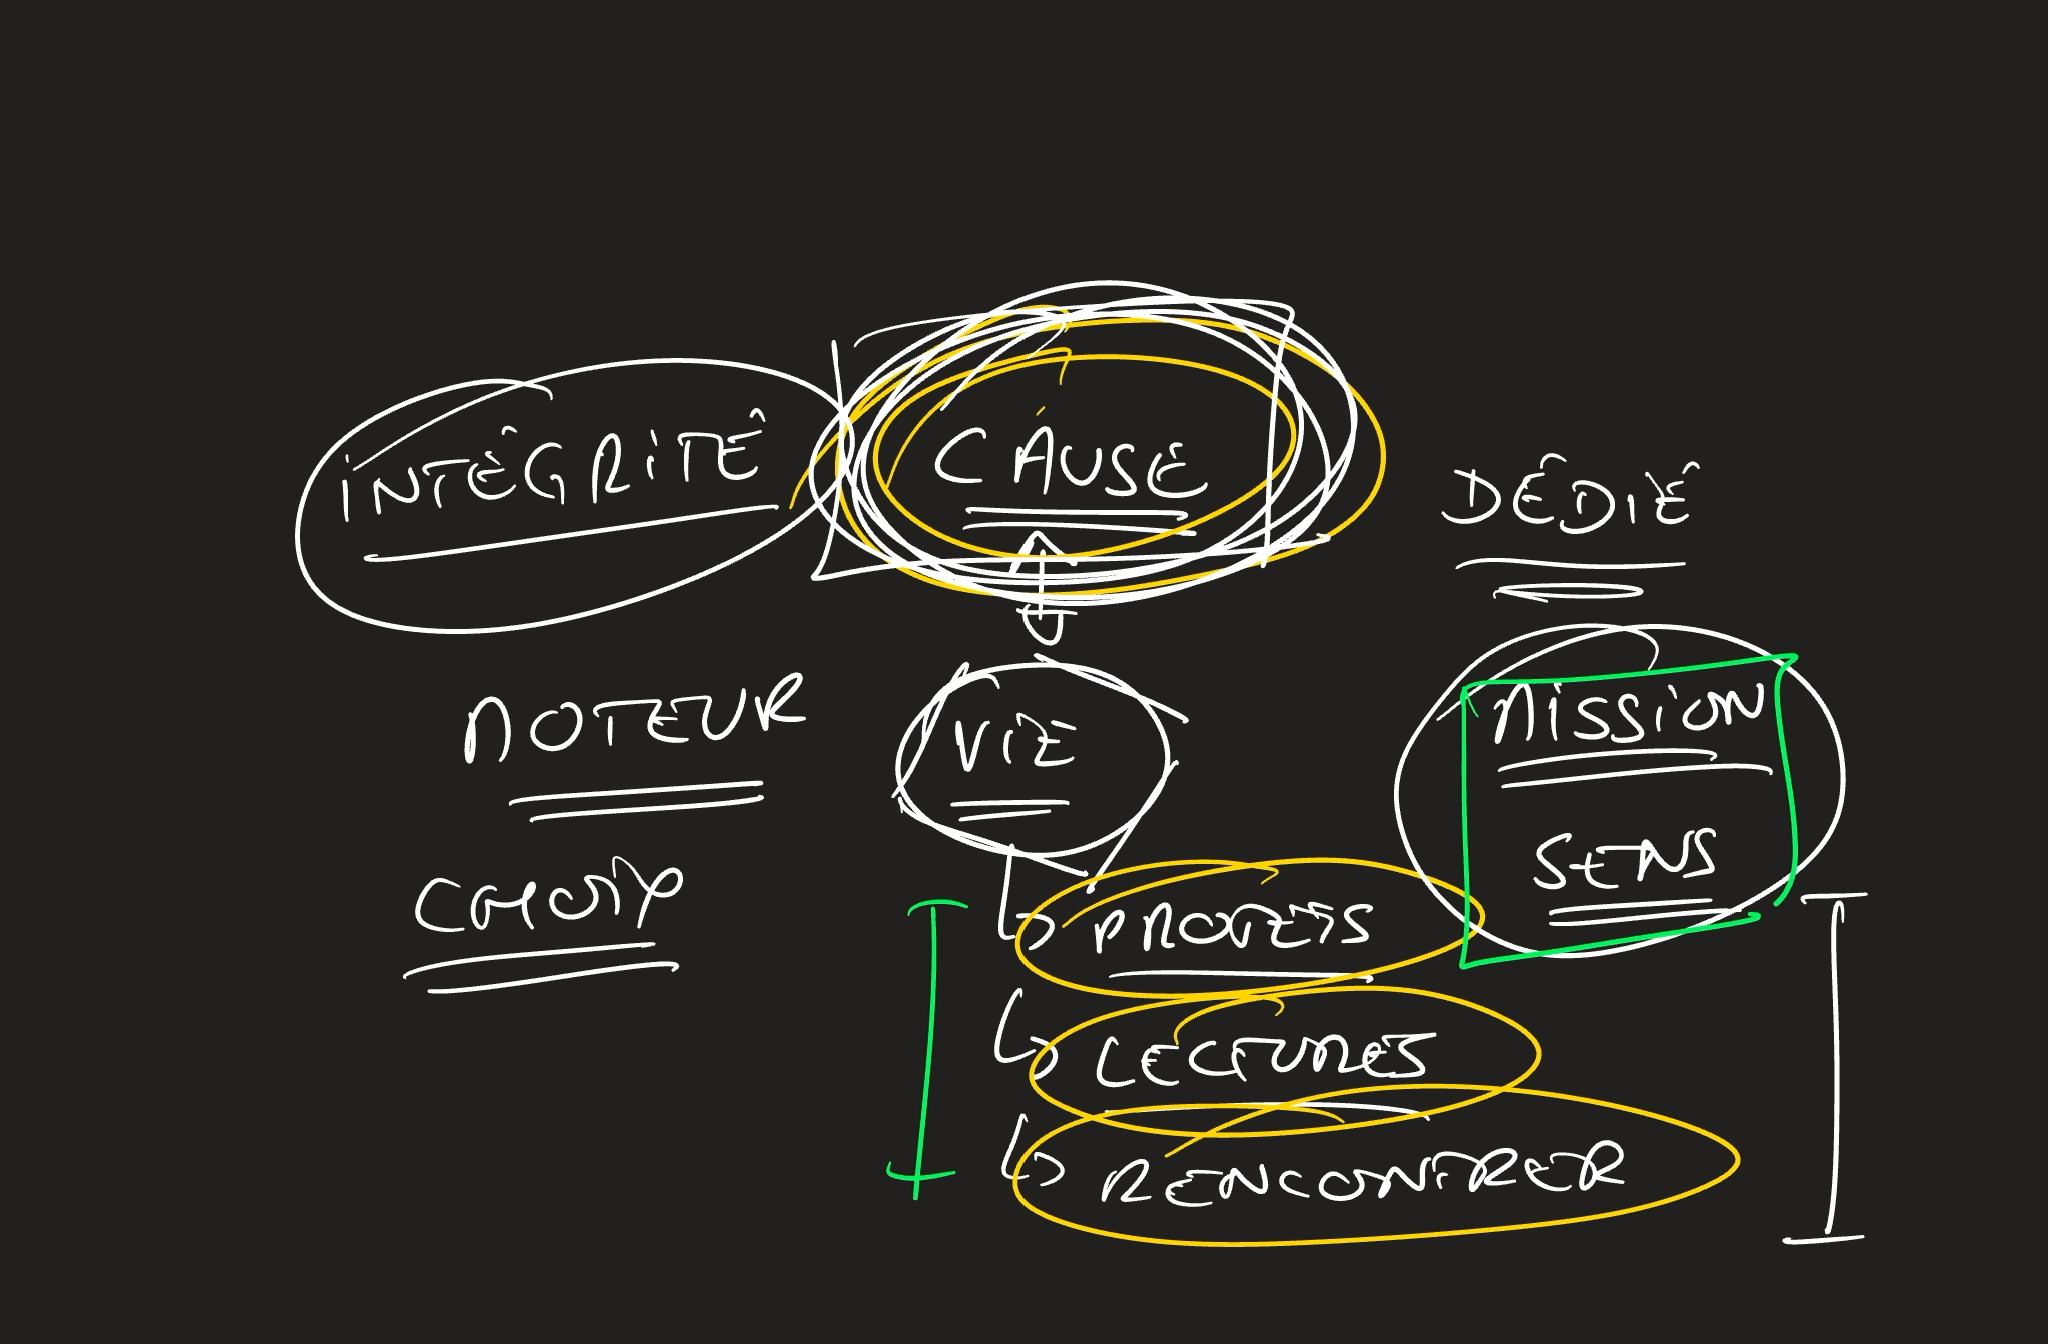 INTÉGRITÉ
CAUSE
DÉDIÉ
MOTEUR
VIE
MISSION
CHOIX
SENS
PROJETS
LECTURES
RENCONTRER